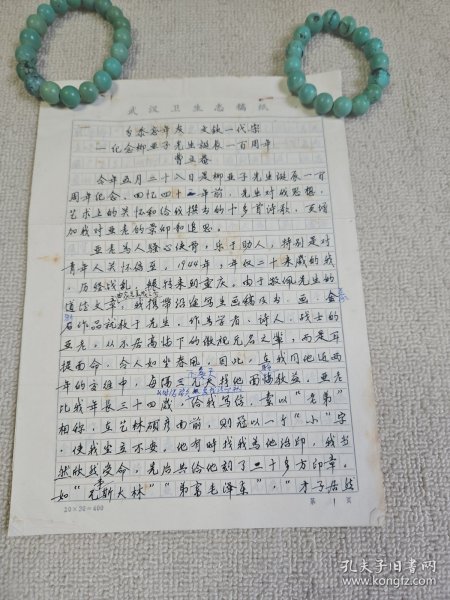 武汉卫生志稿纸
乡泰斗年灰 文故一代宗
—纪念柳亚子先生诞辰一百周年
曹立庵
今年五月二十八日是柳亚子先生诞辰一百
周年纪念，回忆四十二年前，先生对我思想，
艺术上的关怀和给我撰书的十多首诗歌，更增
加我对亚老的景仰和追思。
亚老为人骚心侠骨，乐于助人，特别是对
青年人关怀倍至，1944年，年仅二十来岁的我
，历经战乱，辗转来到重庆，由于敬佩先生的
道德文章，我携带沿途写生画稿及书、画、金
石作品就教于先生，作为学者、诗人、战士的
亚老，从不居高临下的傲视无名之辈，而是耳
提面命，令人如坐春风，因此，在我同他近两
年的交往中，每隔三几天找他面聆教益，亚老
比我年长三十四岁，给我写信，素以“老弟”
相称，在艺林硕彦面前，则冠以一个“小”字
，使我坐立不安，他有时找我为他治印，我当
然欣然受命，先后共给他刻了二十多方印章，
如“兄事斯大林”“弟畜毛泽东”，“才子居然
20×20=400
第 1 页
孔夫子旧书网
www.kongfz.com